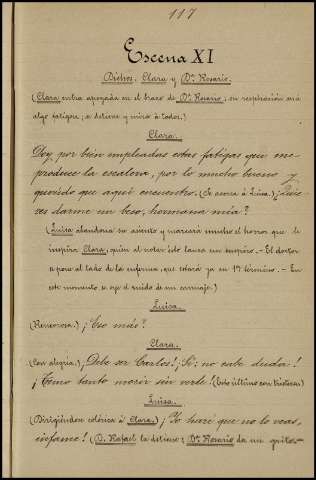 117
Escena XI
Dichos, Clara y Dª Rosario.
(Clara entra apoyada en el brazo de Dª Rosario; su respiración será
algo fatigosa; se detiene y mira á todos.)
Clara.
Doy por bien empleadas estas fatigas que me
produce la escalera, por lo mucho bueno y
querido que aquí encuentro. (Se acerca á Luisa.) ¿Quie-
res darme un beso, hermana mía?
(Luisa abandona su asiento y marcará mucho el horror que le
inspira Clara; quien al notar ésto lanza un suspiro. - El doctor
se pone al lado de la enferma, que estará ya en 1er término. - En
este momento se oye el ruido de un carruaje.)
Luisa.
(Rencorosa.) ¡Eso más?
Clara.
(Con alegría.) ¡Debe ser Carlos! ¡Sí: no cabe duda!
¡Temo tanto morir sin verle! (Esto último con tristeza.)
Luisa.
(Dirigiéndose colérica á Clara.) ¡Yo haré que no lo veas,
infame! (D. Rafael la detiene; Dª Rosario da un grito-